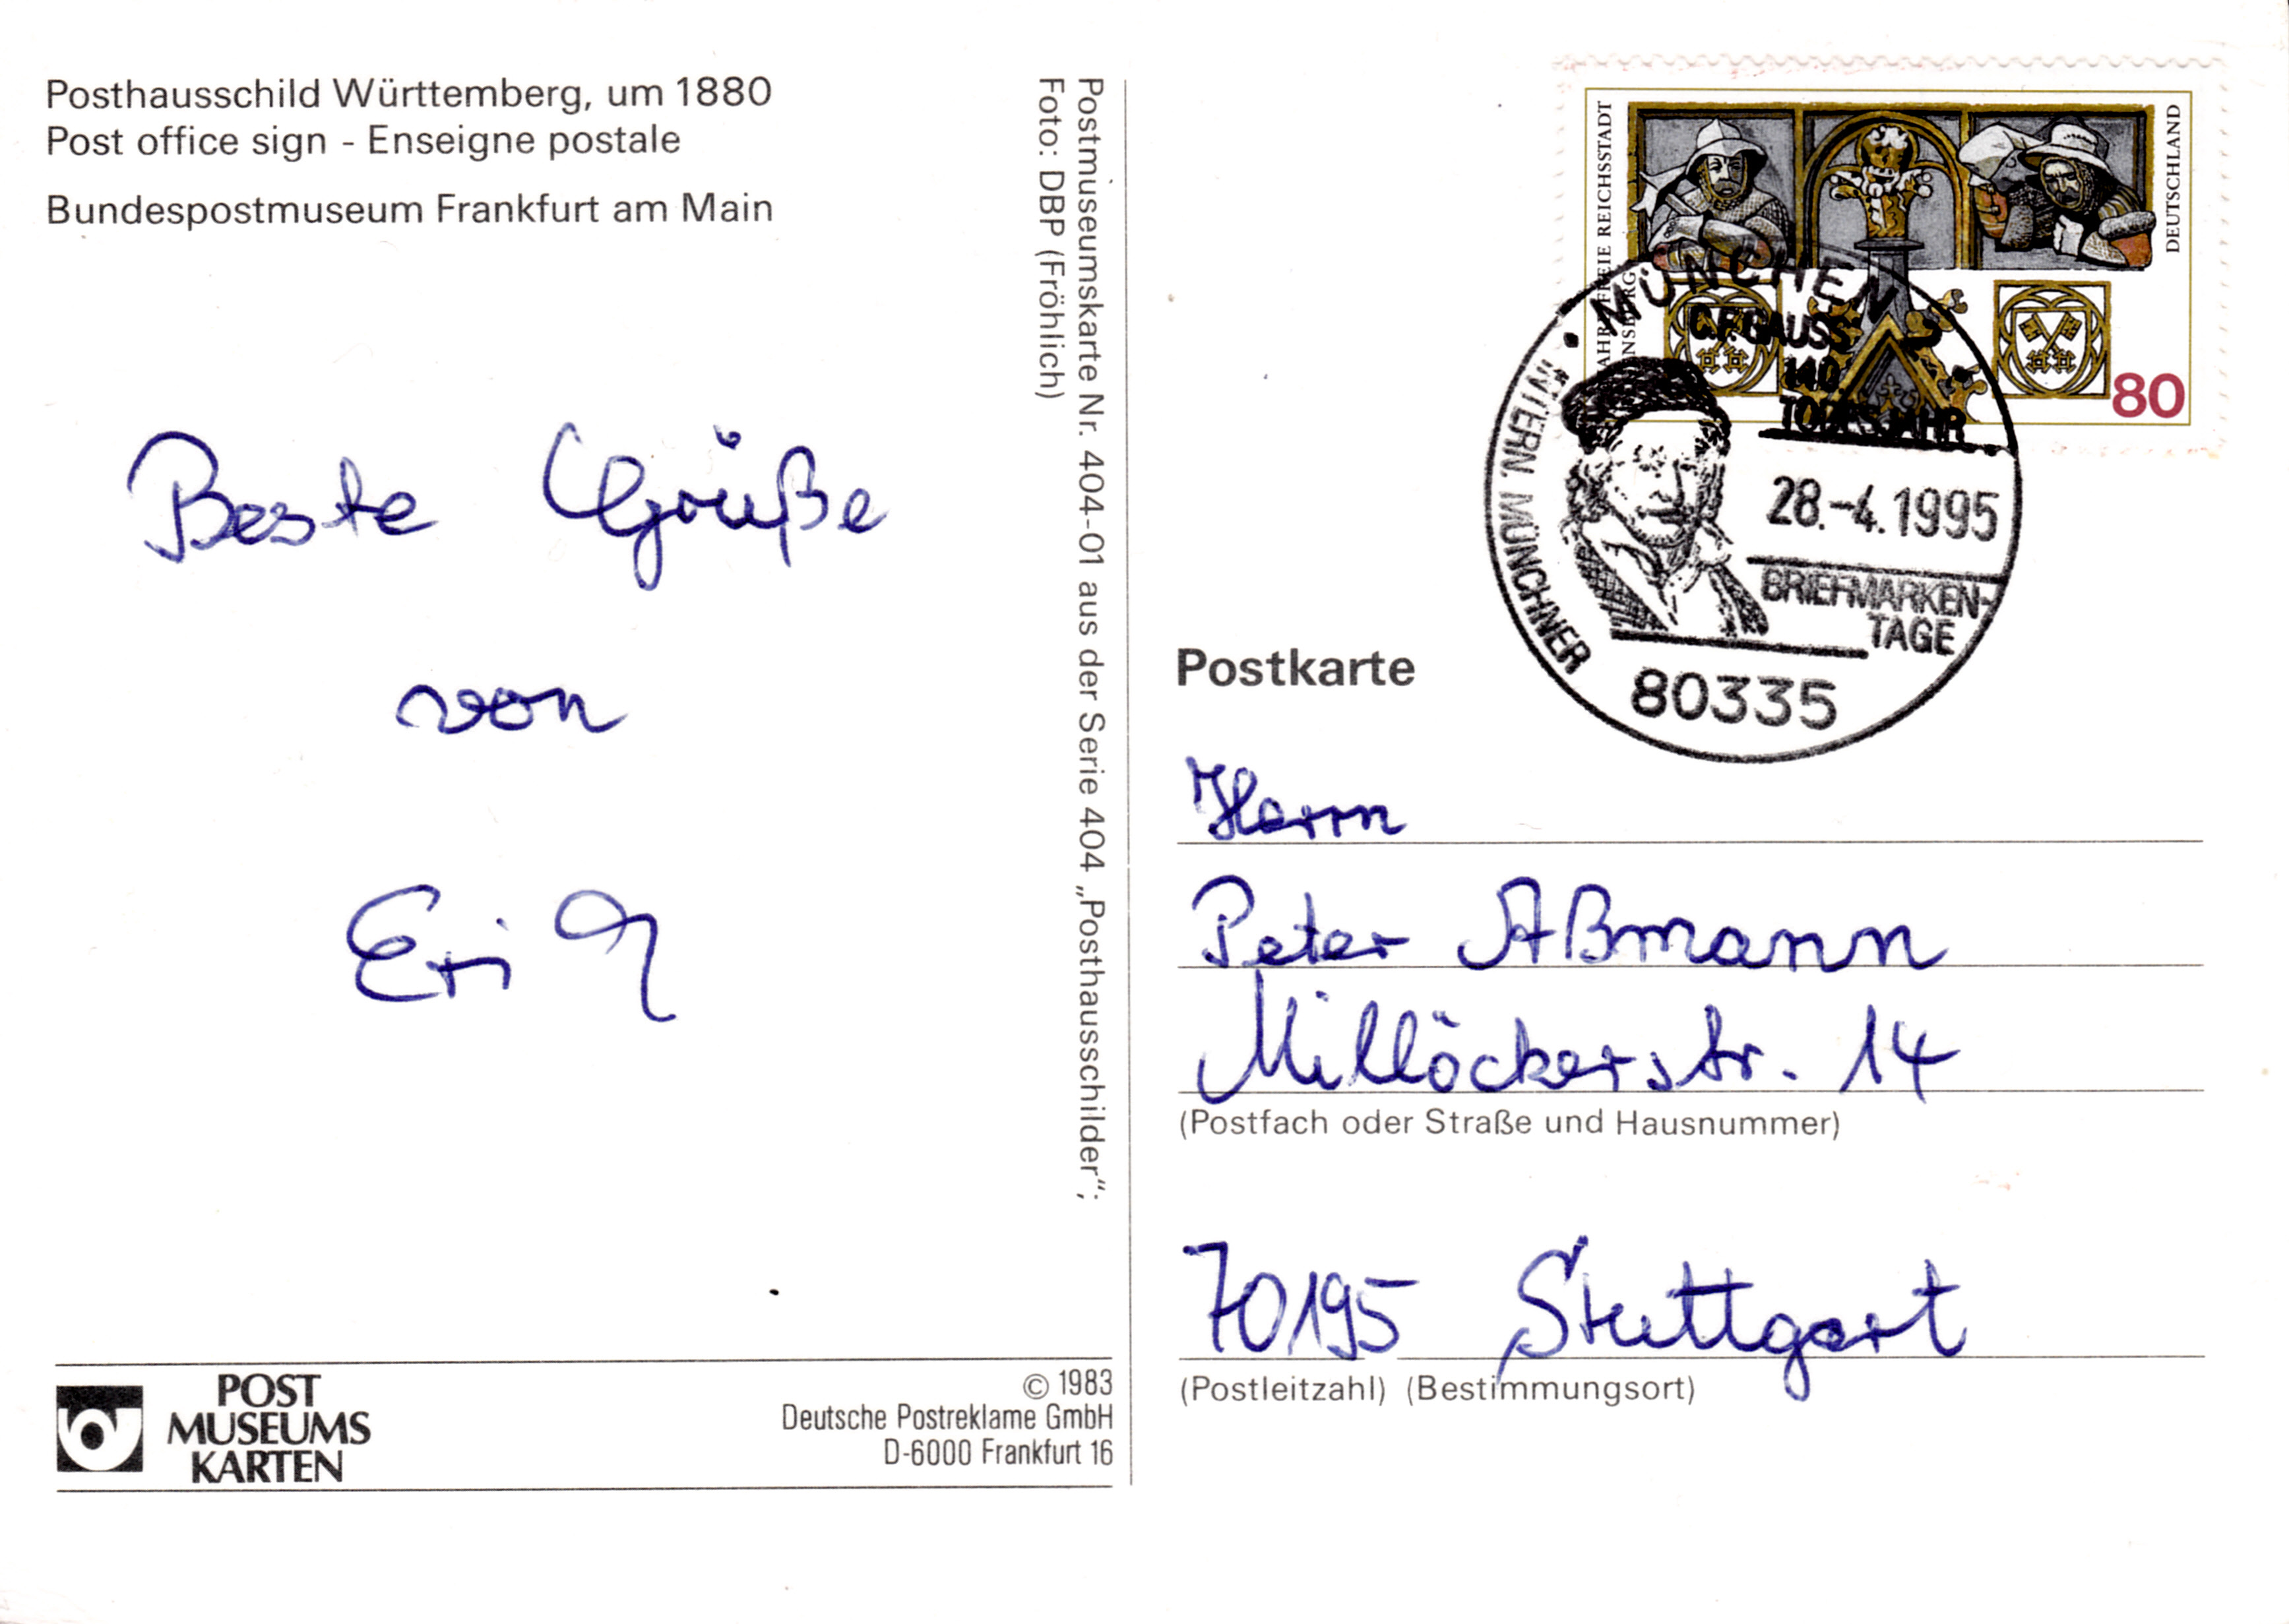 Posthausschild Württemberg, um 1880
Post office sign - Enseigne postale
Bundespostmuseum Frankfurt am Main
Beste Grüße
von
Postmuseumskarte Nr. 404-01 aus der Serie 404 „Posthausschilder“;
Foto: DBP (Fröhlich)
POST
MUSEUMS
KARTEN
© 1983
Deutsche Postreklame GmbH
D-6000 Frankfurt 16
FREIE REICHSSTADT
DEUTSCHLAND
80
MÜNCHEN
C.F.GAUSS
140.
TODESJAHR
28.-4.1995
INTERN. MÜNCHNER
BRIEFMARKEN-
TAGE
80335
Postkarte
Herrn
Peter Aßmann
Millöckerstr. 14
(Postfach oder Straße und Hausnummer)
70195 Stuttgart
(Postleitzahl) (Bestimmungsort)